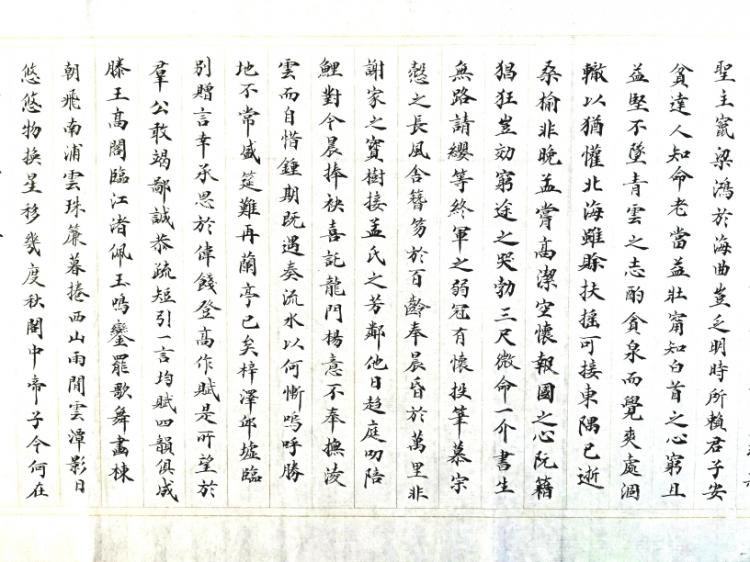 聖主竄梁鴻於海曲豈乏明時所賴君子安
貧達人知命老當益壯甯知白首之心窮且
益堅不墜青雲之志酌貪泉而覺爽處涸
轍以猶懽北海雖賒扶搖可接東隅已逝
桑榆非晚孟嘗高潔空懷報國之心阮籍
猖狂豈効窮途之哭勃三尺微命一介書生
無路請纓等終軍之弱冠有懷投筆慕宗
愨之長風舍簪笏於百齡奉晨昏於萬里非
謝家之寶樹接孟氏之芳鄰他日趍庭叨陪
鯉對今晨捧袂喜託龍門楊意不奉撫淩
雲而自惜鍾期既遇奏流水以何慚嗚呼勝
地不常盛筵難再蘭亭已矣梓澤邱墟臨
別贈言幸承恩於偉餞登高作賦是所望於
羣公敢竭鄙誠恭疏短引一言均賦四韻俱成
滕王高閣臨江渚佩玉鳴鑾罷歌舞畫棟
朝飛南浦雲珠簾暮捲西山雨閒雲潭影日
悠悠物換星移幾度秋閣中帝子今何在